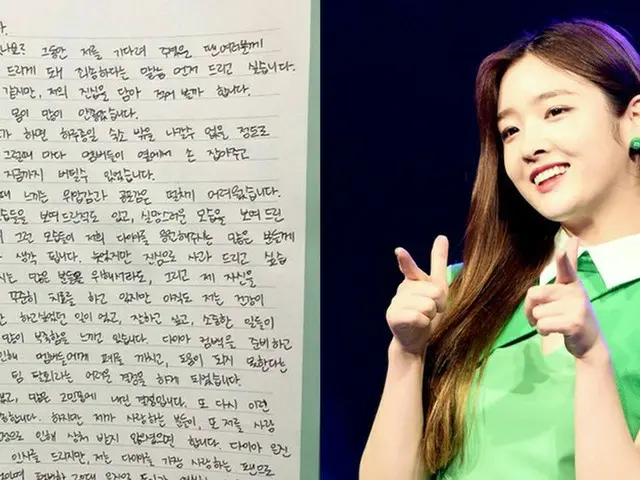 다.
그동안 저를 기다려 주셨을 팬 여러분께
드리게 돼 죄송하다는 말씀 먼저 드리고 싶습니다.
같지만, 저의 진심을 담아 적어 볼까 합니다.
몸이 많이 안좋았습니다.
가 하면 하루종일 침대 밖을 나갈수 없을 정도로
그럴때 마다 멤버들이 옆에서 손 잡아주고
지금까지 버틸수 있었습니다.
때 느끼는 위압감과 공포감은 떨치기 어려웠습니다.
모습들을 보여 드린적도 있고, 실망스러운 모습을 보여 드린
그런 모습들이 저희 다이아를 응원해주시는 많은 분들께
생각 됩니다. 늦었지만 진심으로 사과 드리고 싶습
시는 많은 분들을 위해서라도, 그리고 제 자신을
꾸준히 치료를 하고 있지만 아직도 저는 건강이
하고싶었던 일이 었고, 잘하고 싶고, 소중한 일들이
많이 부족함을 느끼고 있습니다. 다이아 컴백을 준비하고
인해 멤버들에게 폐를 끼치고, 도움이 되지 못한다는
팀 탈퇴라는 어려운 결정을 하게 되었습니다.
고, 많은 고민끝에 내린 결정입니다. 또 다시 이런
송합니다. 하지만 제가 사랑하는 분들이, 또 저를 사랑
것으로 인해 상처 받지 않았으면 합니다. 다이아 은진
인사를 드리지만, 저는 다이아를 가장 사랑하는 팬으로
평범한 20대